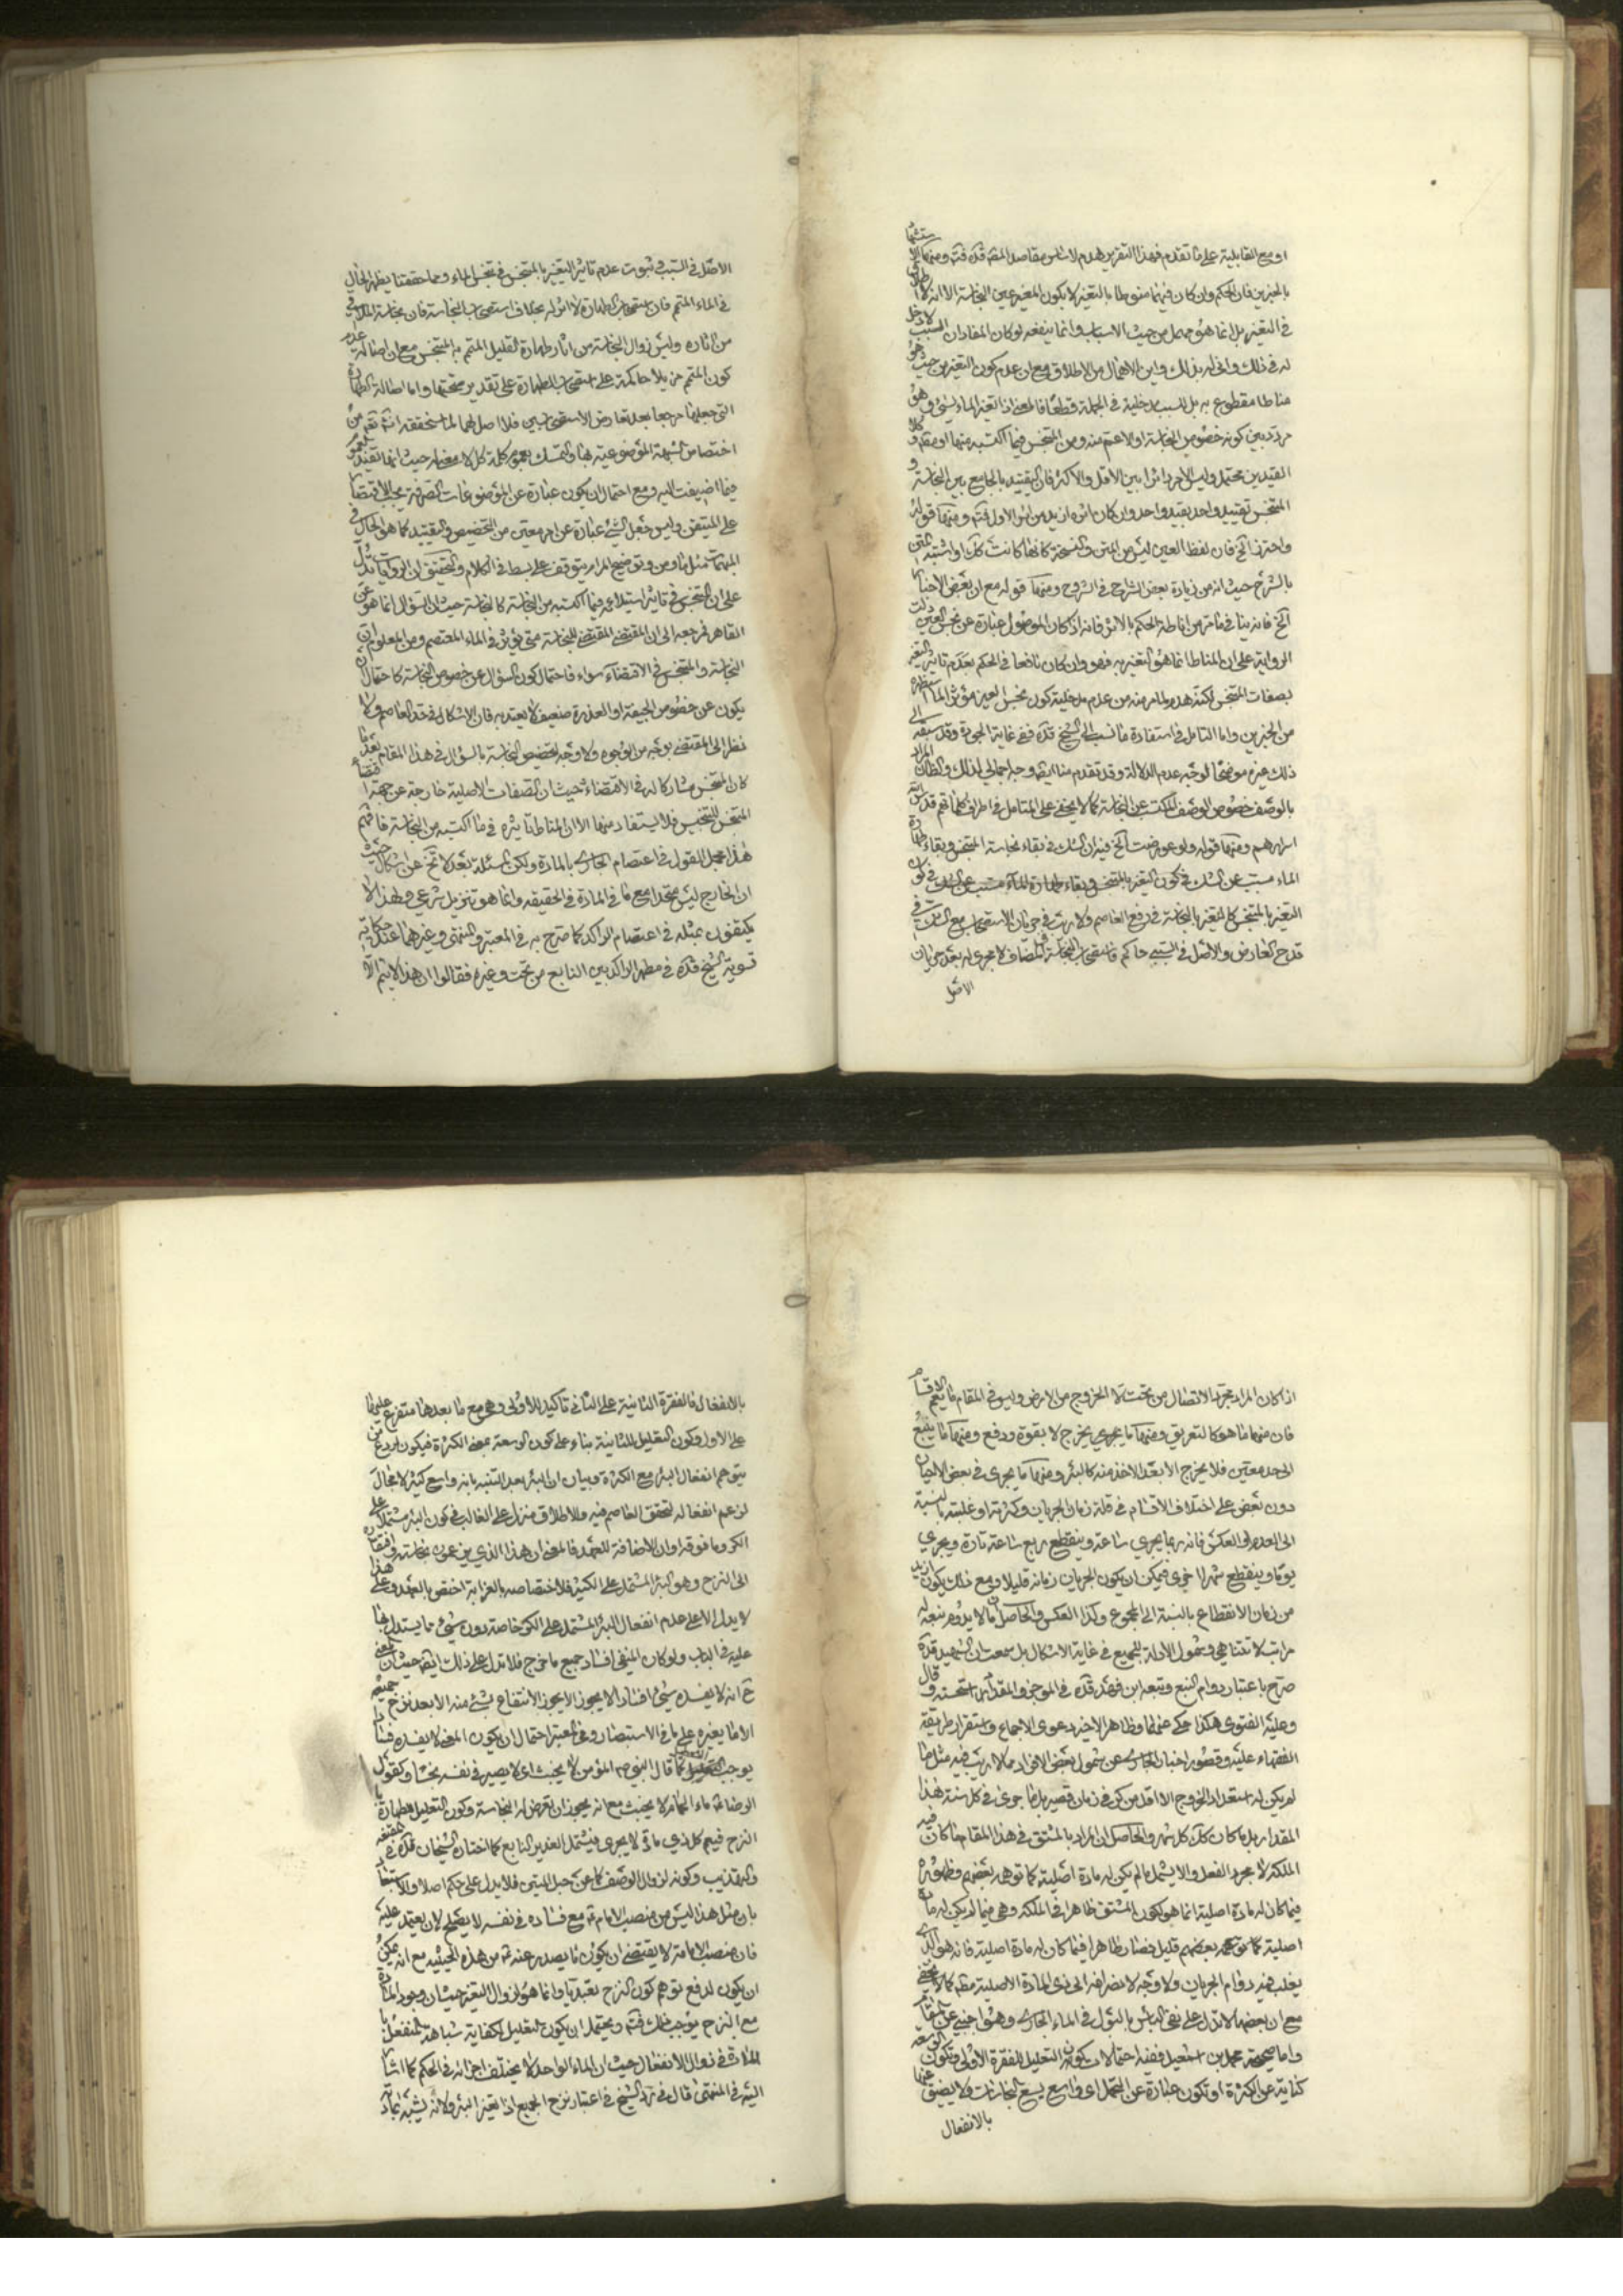 او مع القابلية على ما تقدم فهذا التقرير هدم لاساس مقاصد المصنف قده فتدبر ومنها
بالخبرين فان الحكم وان كان فيهما منوطا بالتغير لا بكون المغير عين النجاسة الا انه لا
في التغير بل انما هو مهمل من حيث الاسباب وانما ينفعه لو كان المفاد ان السبب لا دخل
له في ذلك واين الاهمال من الاطلاق مع ان عدم كون التغير من حيث هو
مناطا مقطوع به بل للسبب مدخلية في الجملة قطعا فالمعنى اذا تغير الماء بشيء وهو
مردد بين كونه خصوص النجاسة او الاعم منه ومن المتنجس فيما اكتسبه منها
القيدين محتمل وليس الامر دائرا بين الاقل والاكثر فان التقييد بالجامع بين النجاسة و
المتنجس تقييد واحد بقيد واحد وان كان اثره ازيد من اثر الاول فتدبر ومنها قوله
واحترزنا الخ فان لفظ العين ليس من المتن والنسخة كانها كانت كك او اشتبه المتن
بالشرح حيث انه من زيادة بعض الشراح في الشروح ومنها قوله مع ان بعض الاخبار
الخ فانه ينافي ما مر من اناطة الحكم بالاثر فانه اذا كان الموصول عبارة عن نجس العين
الرواية على ان المناط انما هو التغير به فهو وان كان نافعا في الحكم بعدم تاثير التغير
بصفات المتنجس لكنه هدم لما مر منه من عدم مدخلية كون نجس العين مؤثرا
من الخبرين واما التامل في استفادة ما نسب الى الشيخ قده ففي غاية الجودة وقد سبقه الى
ذلك غيره موضحا لوجه عدم الدلالة وقد تقدم منا ايضا وجه اجمالي لذلك والظان المراد
بالوصف خصوص الوصف المكتسب عن النجاسة كما لا يخفى على المتامل في اطراف كلماتهم قدس الله
اسرارهم ومنها قوله ولو عورضت الخ فيه ان الشك في بقاء نجاسة المتنجس وبقاء طهارة
الماء مسبب عن الشك في كون التغير بالمتنجس وبقاء طهارة الماء مسبب عن الشك في كون
التغير بالمتنجس كالتغير بالنجاسة في رفع العاصم ولا ريب في جريان الاستصحاب مع الشك في
قدح العارض والاصل في السببي حاكم فاستصحاب النجاسة في المضاف لا مجرى له بعد جريان
الاصل
الاصل في السبب في ثبوت عدم تاثير التغير بالمتنجس في تنجس الماء ومما حققنا يظهر الحال
في الماء المتمم فان استصحاب الطهارة لا اثر له بخلاف استصحاب النجاسة فان نجاسة الملاقي
من اثاره وليس زوال النجاسة من اثار طهارة القليل المتمم به المتنجس مع ان اصالة عدم
كون المتمم مزيلا حاكمة على استصحاب الطهارة على تقدير صحتها واما اصالة الطهارة
التي جعلها مرجعا بعد تعارض الاستصحابين فلا اصل لها لما ستحققه انشاء الله تعالى من
اختصاص الشبهة الموضوعية بها والتمسك بعموم كلمة كل لا معنى له حيث انها تفيد العموم
فيما اضيفت اليه ومع احتمال ان يكون عبارة عن الموضوعات الصرفة يجب الاقتصار
على المتيقن وليس جعل الشيء عبارة عن امر معين من التخصيص والتقييد كما هو الحال في
المبهمات مثل ما ومن وتوضيح المرام يتوقف على بسط في الكلام والتحقيق ان الروايات تدل
على ان المتنجس في تاثير استيلائه فيما اكتسبه من النجاسة كالنجاسة حيث ان السؤال انما هو عن
القاهر فمرجعه الى ان المقتضي المقتضي للنجاسة متى يؤثر في الماء المعتصم ومن المعلوم ان
النجاسة والمتنجس في الاقتضاء سواء فاحتمال كون السؤال عن خصوص النجاسة كاحتمال ان
يكون عن خصوص الجيفة او العذرة ضعيف لا يعتد به فان الاشكال في حد العاصم ولا
نظر الى المقتضي بوجه من الوجوه ولا وجه لتخصيص النجاسة بالسؤال في هذا المقام بعد ما
كان المتنجس مشاركا له في الاقتضاء حيث ان الصفات الاصلية خارجة عن جهة اقتضاء
المتنجس للتنجيس فلا يستفاد منها الا ان المناط تاثيره في ما اكتسبه من النجاسة فافهم
هذا مجمل القول في اعتصام الجاري بالمادة ولكن المسئلة بعد لا تخ عن اشكال حيث
ان الخارج ليس متحدا مع ما في المادة في الحقيقة وانما هو تنزيل شرعي ولهذا لا
يكتفون بمثله في اعتصام الراكد كما صرح به في المعتبر والمنتهى وغيرهما عند حكاية
تسوية الشيخ قده في مطهر الراكد بين النابع من تحت وغيره فقالوا ان هذا لا يتم الا
اذا كان المراد مجرد الاتصال من تحت لا الخروج من الارض وليس في المقام ما يعم الاقسام
فان منها ما هو كالتعريق ومنها ما يجري يخرج لا بقوة ودفع ومنها ما ينبع
الى حد معين فلا يخرج الا بعد الاخذ منه كالبئر ومنها ما يجري في بعض الاحيان
دون بعض على اختلاف الاقسام في قلة زمان الجريان وكثرته او غلبته بالنسبة
الى العدم او العكس فانه ربما يجري ساعة وينقطع ربع ساعة تارة ويجري
يوما وينقطع شهرا اخرى فيمكن ان يكون الجريان زمانه قليلا ومع ذلك يكون ازيد
من زمان الانقطاع بالنسبة الى المجموع وكذا العكس والحاصل ان ما لا يدوم نبعه له
مراتب لا تتناهى وشمول الادلة للجميع في غاية الاشكال بل سمعت ان الشهيد قده
صرح باعتبار دوام النبع وتبعه ابن فهد قده في الموجز والمقداد استحسنه وقال
وعليه الفتوى هكذا حكي عنهما وظاهر الاخير دعوى الاجماع واستقرار طريقة
الفقهاء عليه وقصور اخبار الجاري عن شمول بعض الافراد مما لا ريب فيه مثل ما
لم يكن له استعداد الخروج الا اقل من كر في زمان قصير بل ما جرى في كل سنة هذا
المقدار بل ما كان كك كل شهر والحاصل ان المراد بالمشتق في هذا المقام ما كان فيه
الملكة لا مجرد الفعل والا يشمل ما لم يكن له مادة اصلية كما توهم بعضهم وظهوره
فيما كان له مادة اصلية انما هو لكون المشتق ظاهرا في الملكة وهي فيما لم يكن له مادة
اصلية كما توهم بعضهم قليل فصار ظاهرا فيما كان له مادة اصلية فانه هو الذي
يغلب فيه دوام الجريان ولا وجه لانصرافه الى ذي المادة الاصلية مطلقا كما لا يخفى
مع ان بعضها لا تدل على نفي الباس بالبول في الماء الجاري وهو اجنبي عن المقام
واما صحيحة محمد بن اسمعيل ففيه احتمالات كون التعليل للفقرة الاولى وتكون الوسعة
كناية عن الكثرة او تكون عبارة عن التحمل اي واسع يسع النجاسات ولا يضيق عنها
بالانفعال
بالانفعال فالفقرة الثانية على الثاني تاكيد للاولى وهي مع ما بعدها متفرع عليها
على الاول وكون التعليل للثانية بناء على كون الوسعة بمعنى الكثرة فيكون ردع من
يتوهم انفعال البئر مع الكثرة وبيان ان البئر بعد التنبه بانه واسع كثير لا مجال
لزعم انفعاله لتحقق العاصم فيه والاطلاق منزل على الغالب في كون البئر مشتملا على
الكر وما فوقه او ان الاضافة للعهد فالمعنى ان هذا الذي يزعمون نجاسته وافتقاره
الى النزح وهو البئر المشتمل على الكثير فلاختصاصه بالغرابة اختص بالعهد وعلى هذا
لا يدل الا على عدم انفعال البئر المشتمل على الكر خاصة دون شيء مما يستدل بها
عليه في الباب ولو كان المنفي افساد جميع ما خرج فلا تدل على ذلك ايضا حيث ان المعنى
ح انه لا يفسده شيء افسادا لا يجوز الانتفاع بشيء منه الا بعد نزح جميعه
الا ما يغيره على ما في الاستبصار وفي المعتبر احتمال ان يكون المعنى لا يفسده فسادا
يوجب التعطيل كما قال النبي ص المؤمن لا يخبث اي لا يصير في نفسه نجسا وكقول
الرضا ع ماء الحمام لا يخبث مع انه يجوز ان تعرض له النجاسة وكون التعليل لطهارة
النزح فيعم كل ذي مادة لا يجري فيشتمل الغدير النابع كما اختاره الشيخان قدهما في المقنعة
والتهذيب وكونه لزوال الوصف كما عن حبل المتين فلا يدل على حكم اصلا والاستبعاد
بان مثل هذا ليس من منصب الامام ع مع فساده في نفسه لا يصلح لان يعتمد عليه
فان منصب الامامة لا يقتضي ان يكون ما يصدر عنه ع من هذه الحيثية مع انه يمكن
ان يكون لدفع توهم كون النزح تعبديا وانما هو لزوال التغير حيث ان وجود المادة
مع النزح يوجب ذلك فتدبر ويحتمل ان يكون التعليل لكفاية شباهة المنفعل با
المادة في زوال الانفعال حيث ان الماء الواحد لا يختلف اجزائه في الحكم كما اشار
اليه في المنتهى قال في رد الشيخ في اعتبار نزح الجميع اذا تغير البئر ولانه يشبه بماء